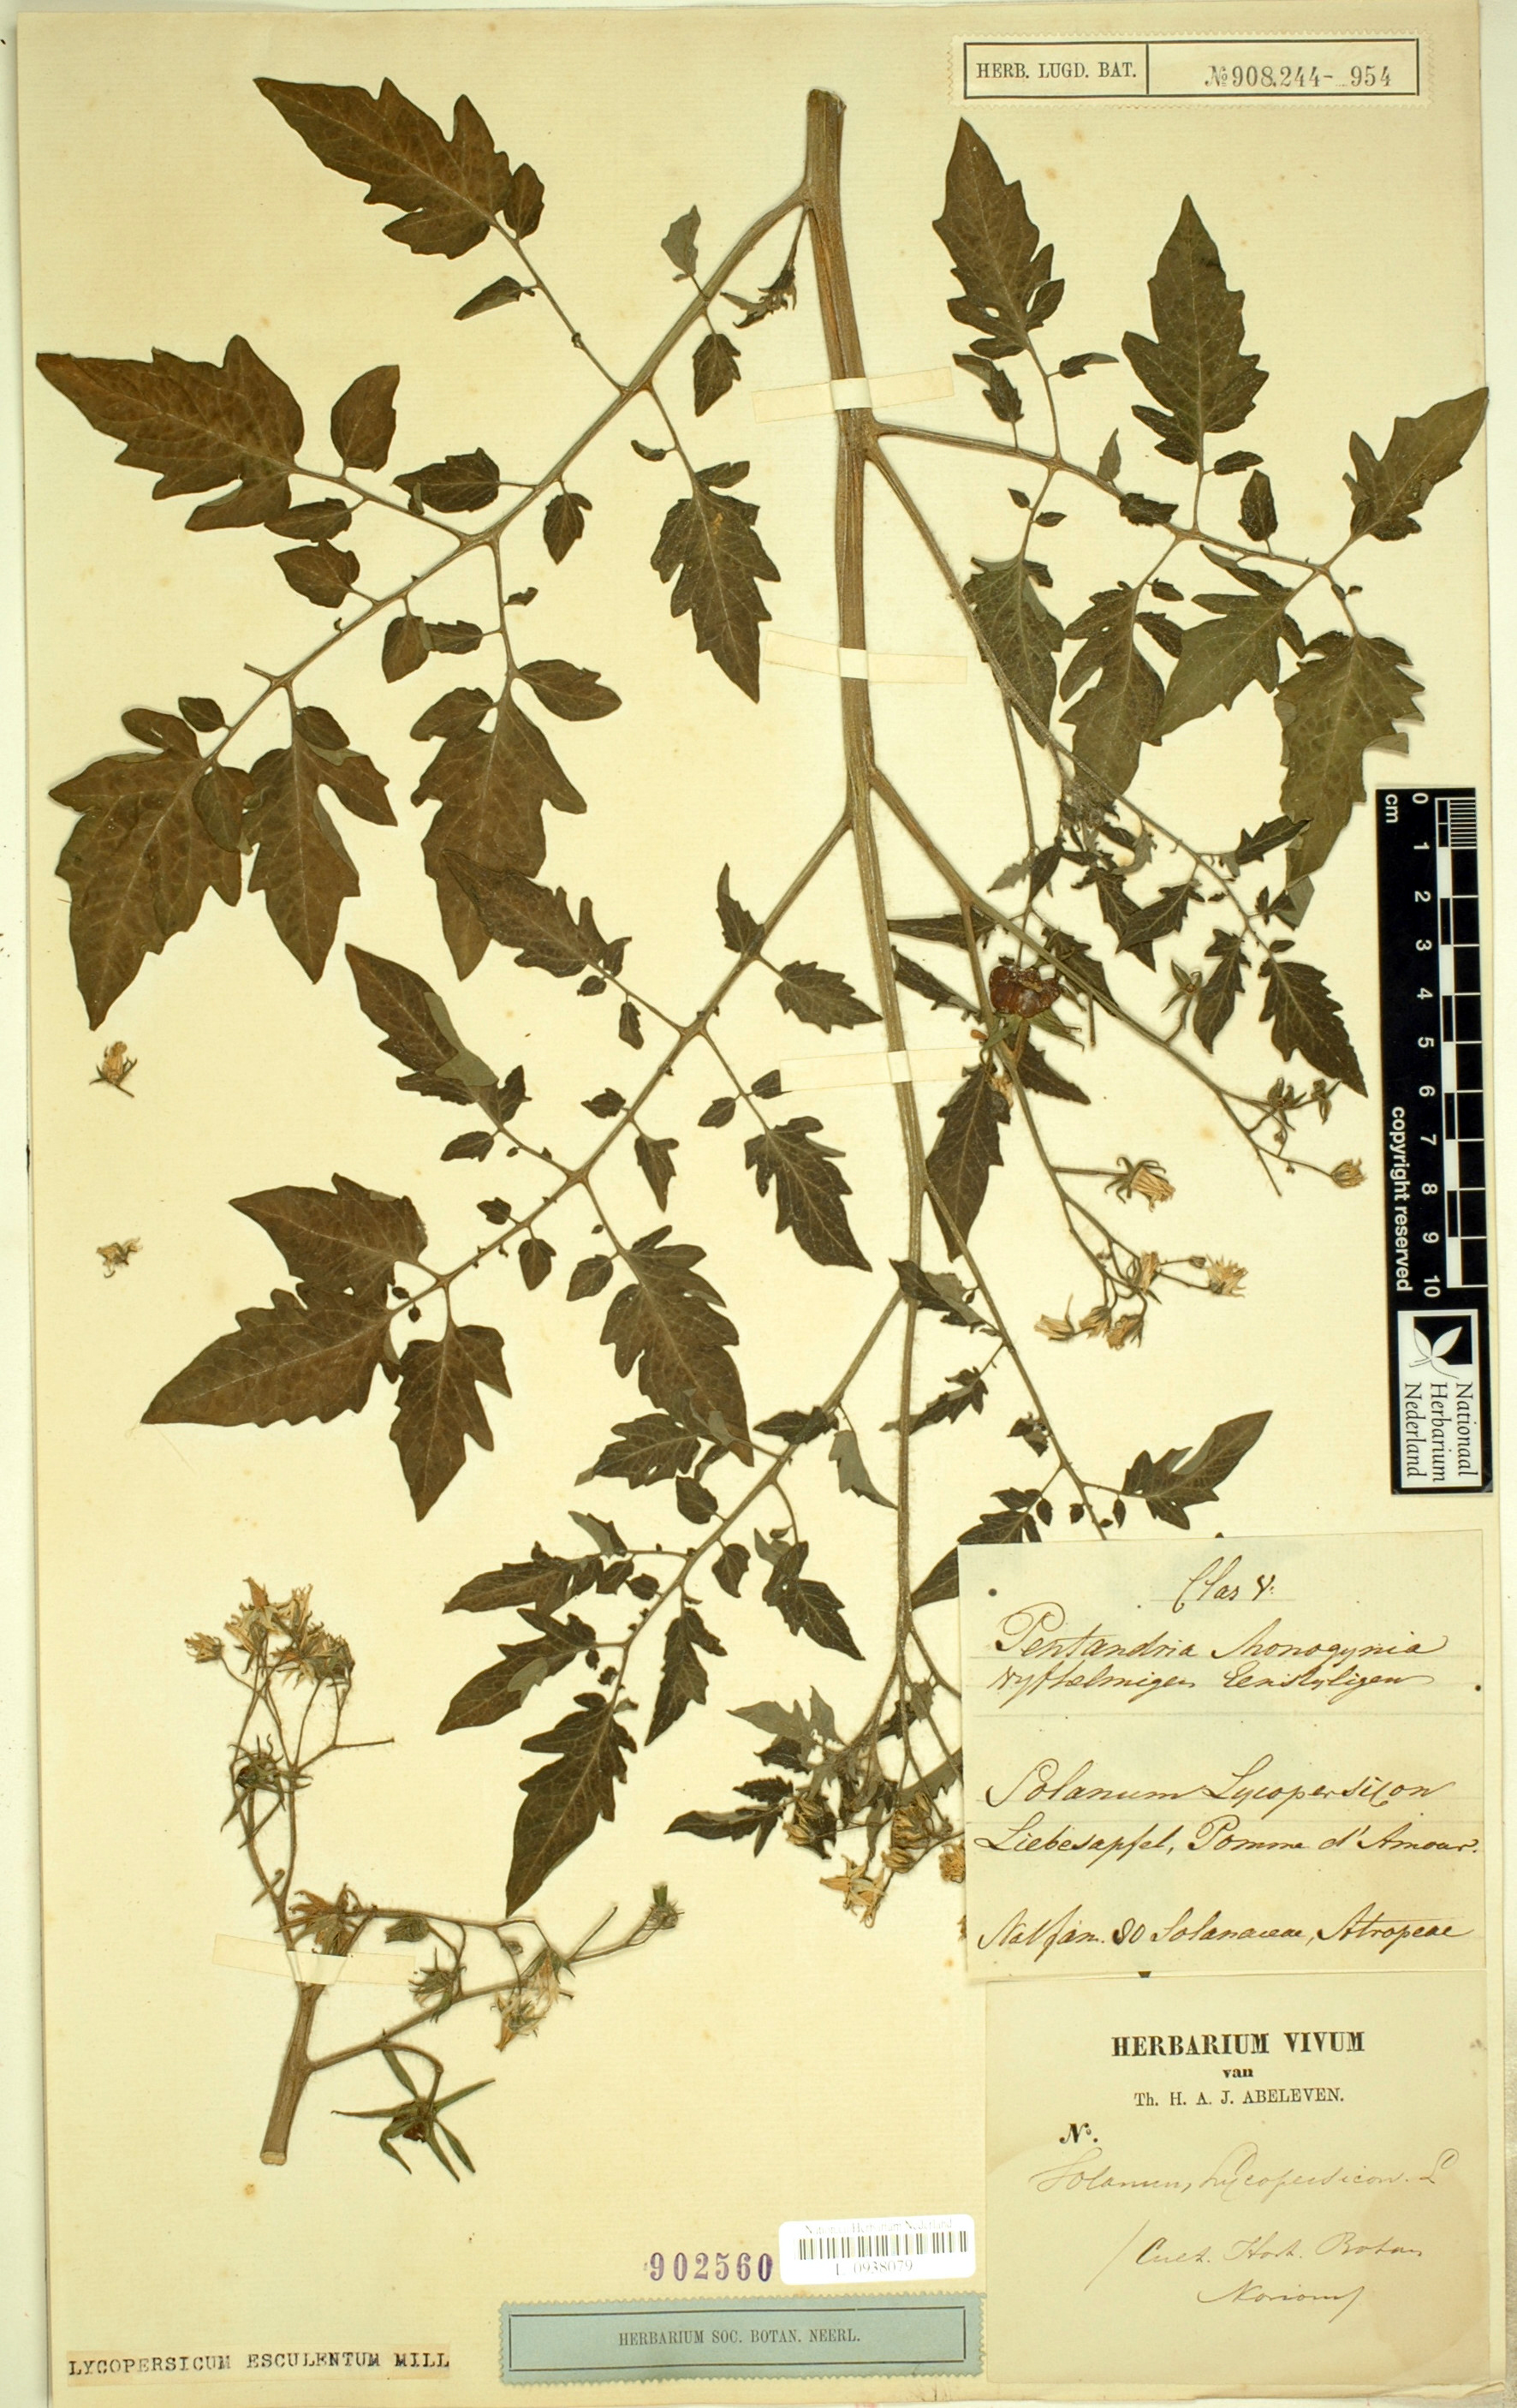 HERB. LUGD. BAT.
№ 908.244- 954
cm 0 1 2 3 4 5 6 7 8 9 10
copyright reserved
National
Herbarium
Nederland
Clas V.
Pentandria Monogynia
Solanum Lycopersicon
Liebesapfel, Pomme d'Amour.
Nat fam. 80 Solanaceae, Atropeae
HERBARIUM VIVUM
van
Th. H. A. J. ABELEVEN.
No.
Solanum Lycopersicon. L
Cult. Hort. Botan
902560
National Herbarium Nederland
L 0938079
HERBARIUM SOC. BOTAN. NEERL.
LYCOPERSICUM ESCULENTUM MILL